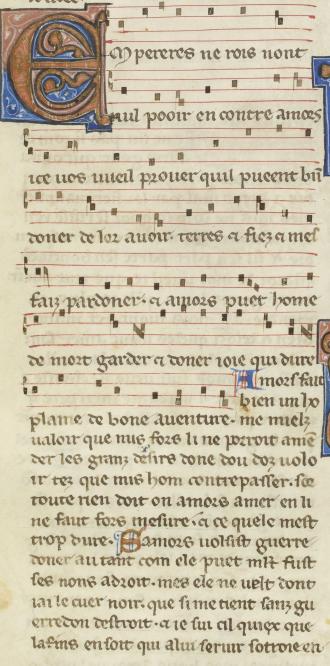 Empereres ne rois nont
nul pooir en contre amors
ice uos vueil prouer quil pueent bñ
doner de lor auoir. terres ⁊ fiez ⁊ mes
faiz pardoner. ⁊ amors puet home
de mort garder ⁊ doner ioie qui dure
Amors fait
bien un ho
plaine de bone auenture. me mielz
ualoir que nus fors li ne porroit amē
der les granz desirs done dou douz uolo
ir tez que nus hom contrepasser. sor
toute rien doit on amors amer en li
ne faut fors mesure. ⁊ ce quele mest
trop dure. Samors uolsist guerre
doner autant com ele puet mlt fust
ses nons adroit. mes ele ne uelt dont
iai le cuer noir. que si me tient sanz gu
erredon destroit. ⁊ ie sui cil quiex que
la fins en soit qui a lui seruir sotroie en